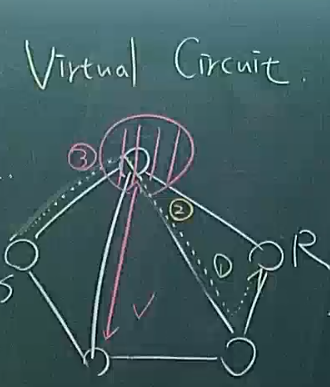 Virtual Circuit.
③
②
①
R
S